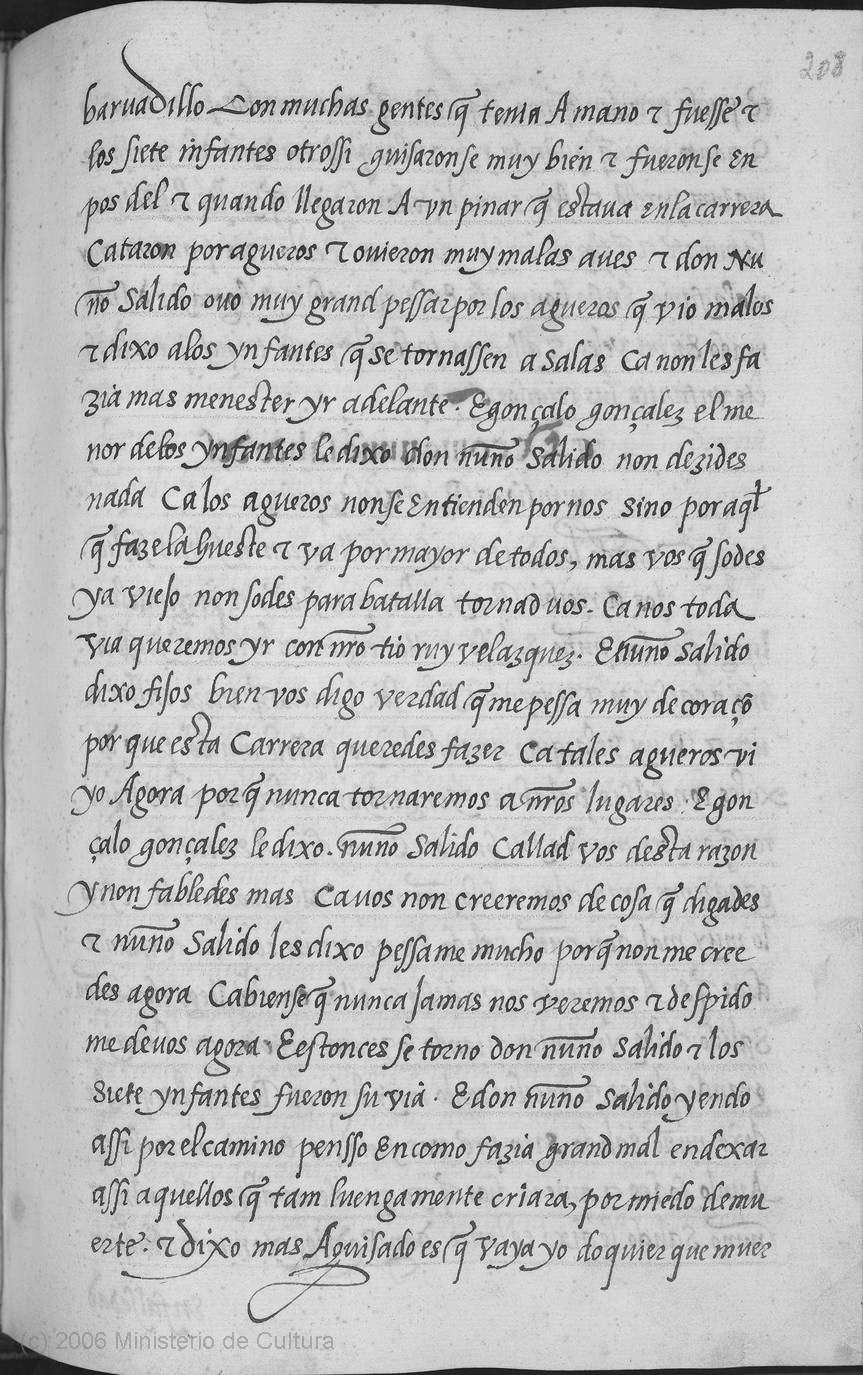 208
barvadillo Con muchas gentes q̃ tenia A mano ꞇ fuesse ꞇ
los siete infantes otrossi guisaronse muy bien ꞇ fueronse En
pos del ꞇ quando llegaron A vn pinar q̃ estava enla carrera
Cataron por agueros ꞇ ovieron muy malas aves ꞇ don Nu
ño Salido ovo muy grand pessar por los agueros q̃ vio malos
ꞇ dixo alos ynfantes q̃ se tornassen a Salas Ca non les fa
zia mas menester yr adelante. E gonçalo gonçalez el me
nor delos ynfantes le dixo don nuño Salido non dezides
nada Ca los agueros non se Entienden por nos sino por aql̃
q̃ faze la hueste ꞇ va por mayor de todos, mas vos q̃ sodes
ya viejo non sodes para batalla tornad vos. Ca nos toda
via queremos yr con nr̃o tio ruy velazquez. E nuño Salido
dixo fijos bien vos digo verdad q̃ me pessa muy de coraçõ
por que esta Carrera queredes fazer Ca tales agueros vi
yo Agora por q̃ nunca tornaremos a nr̃os lugares. E gon
çalo gonçalez le dixo. nuño Salido Callad vos desta razon
y non fabledes mas Ca vos non creeremos de cosa q̃ digades
ꞇ nuño Salido les dixo pessame mucho porq̃ non me cree
des agora Ca bien se q̃ nunca jamas nos veremos ꞇ despido
me de vos agora. E estonces se torno don nuño Salido ꞇ los
Siete ynfantes fueron su via. E don nuño Salido yendo
assi por el camino pensso En como fazia grand mal en dexar
assi a quellos q̃ tam luengamente criara, por miedo de mu
erte. ꞇ dixo mas Aguisado es q̃ vaya yo do quier que muer
(c) 2006 Ministerio de Cultura